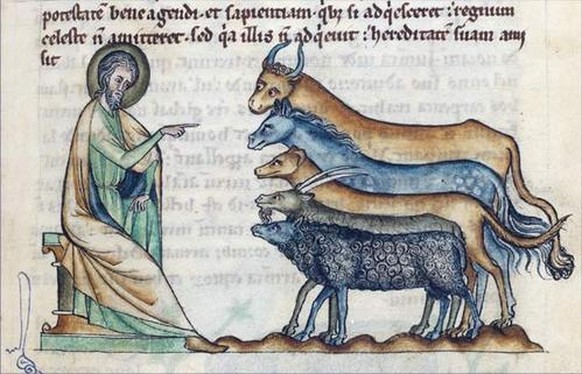 potestatē bene agendi· et sapientiam· qb; si adq̇esceret : regnum
celeste ñ amitteret· sed qa illis ñ adq̇euit : hereditatē suam ami
sit